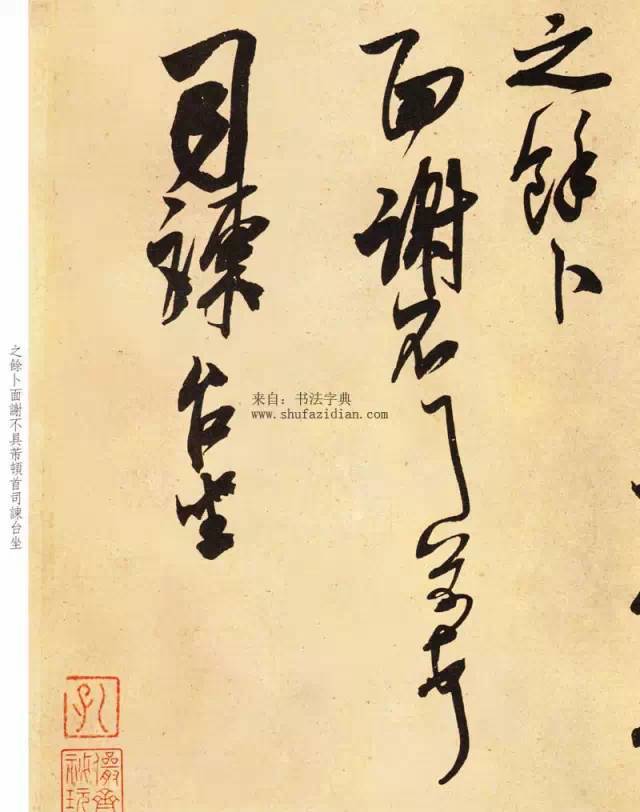 之餘卜
面謝不具芾頓首
司諫台坐
之餘卜面謝不具芾頓首司諫台坐
来自：书法字典
www.shufazidian.com